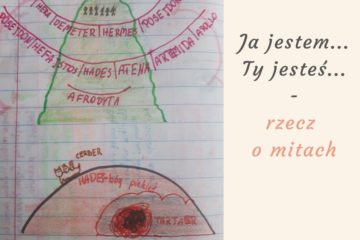 HERA | DEMETER | HERMES | POSEJDON
POSEJDON | HEFAJSTOS | HADES | ATENA | ARTEMIDA | APOLLO
AFRODYTA
CERBER
HADES-bóg piekieł
TARTAR
Ja jestem...
Ty jesteś...
-
rzecz
o mitach